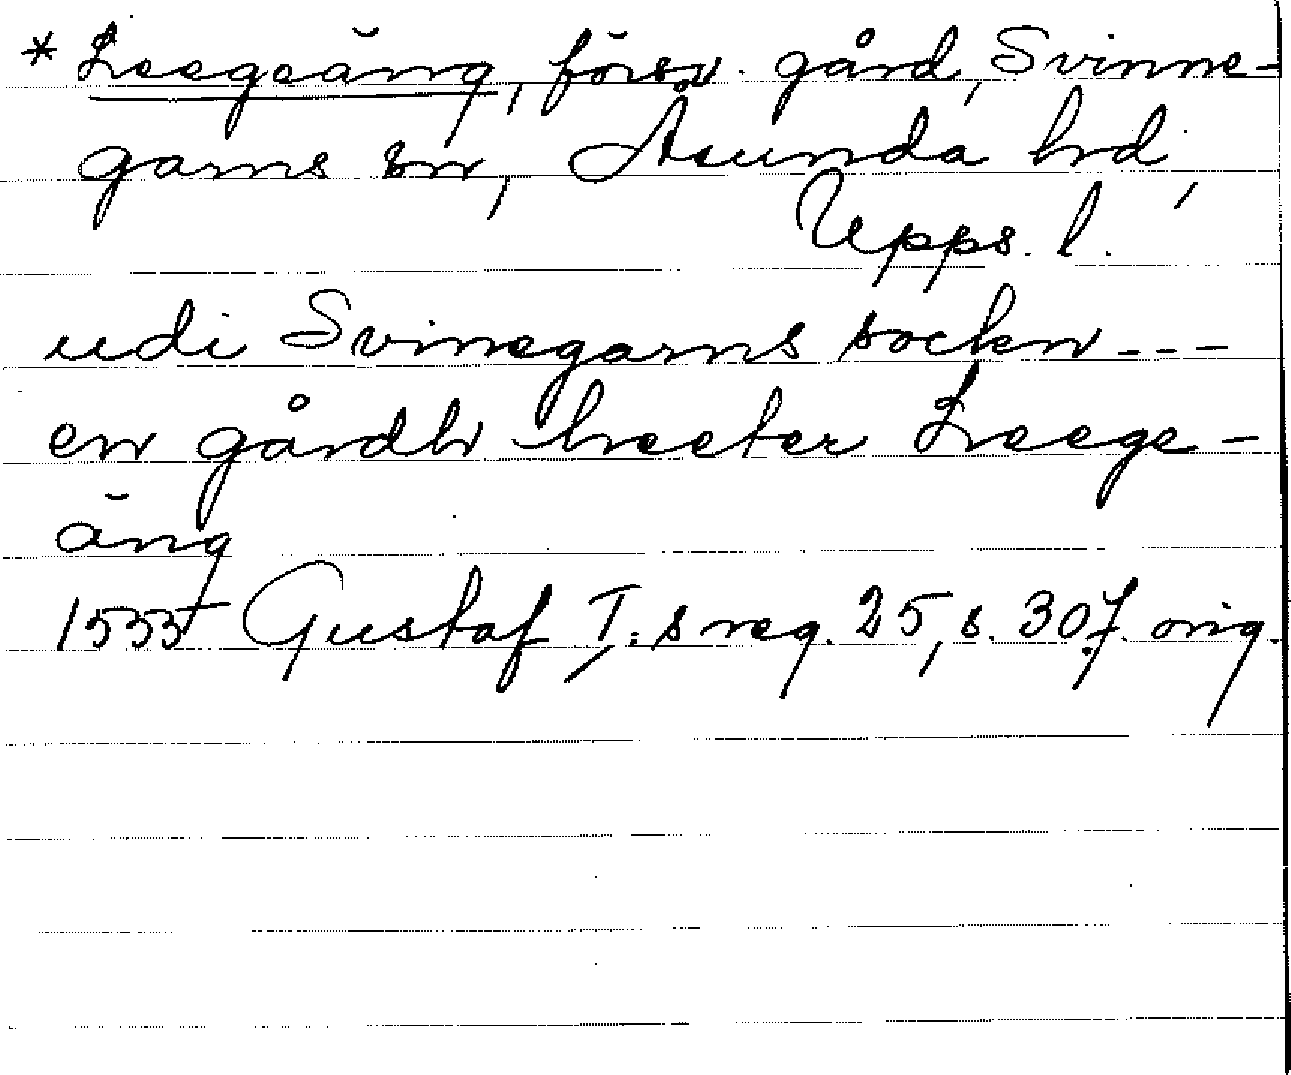 * Leegeäng, försv. gård, Svinne-
garns sn, Åsunda hrd,
Upps. l.
udi Svinegarns sockn ---
en gårdh heeter Leege-
äng
1555 Gustaf I:s reg. 25, s. 307. orig.